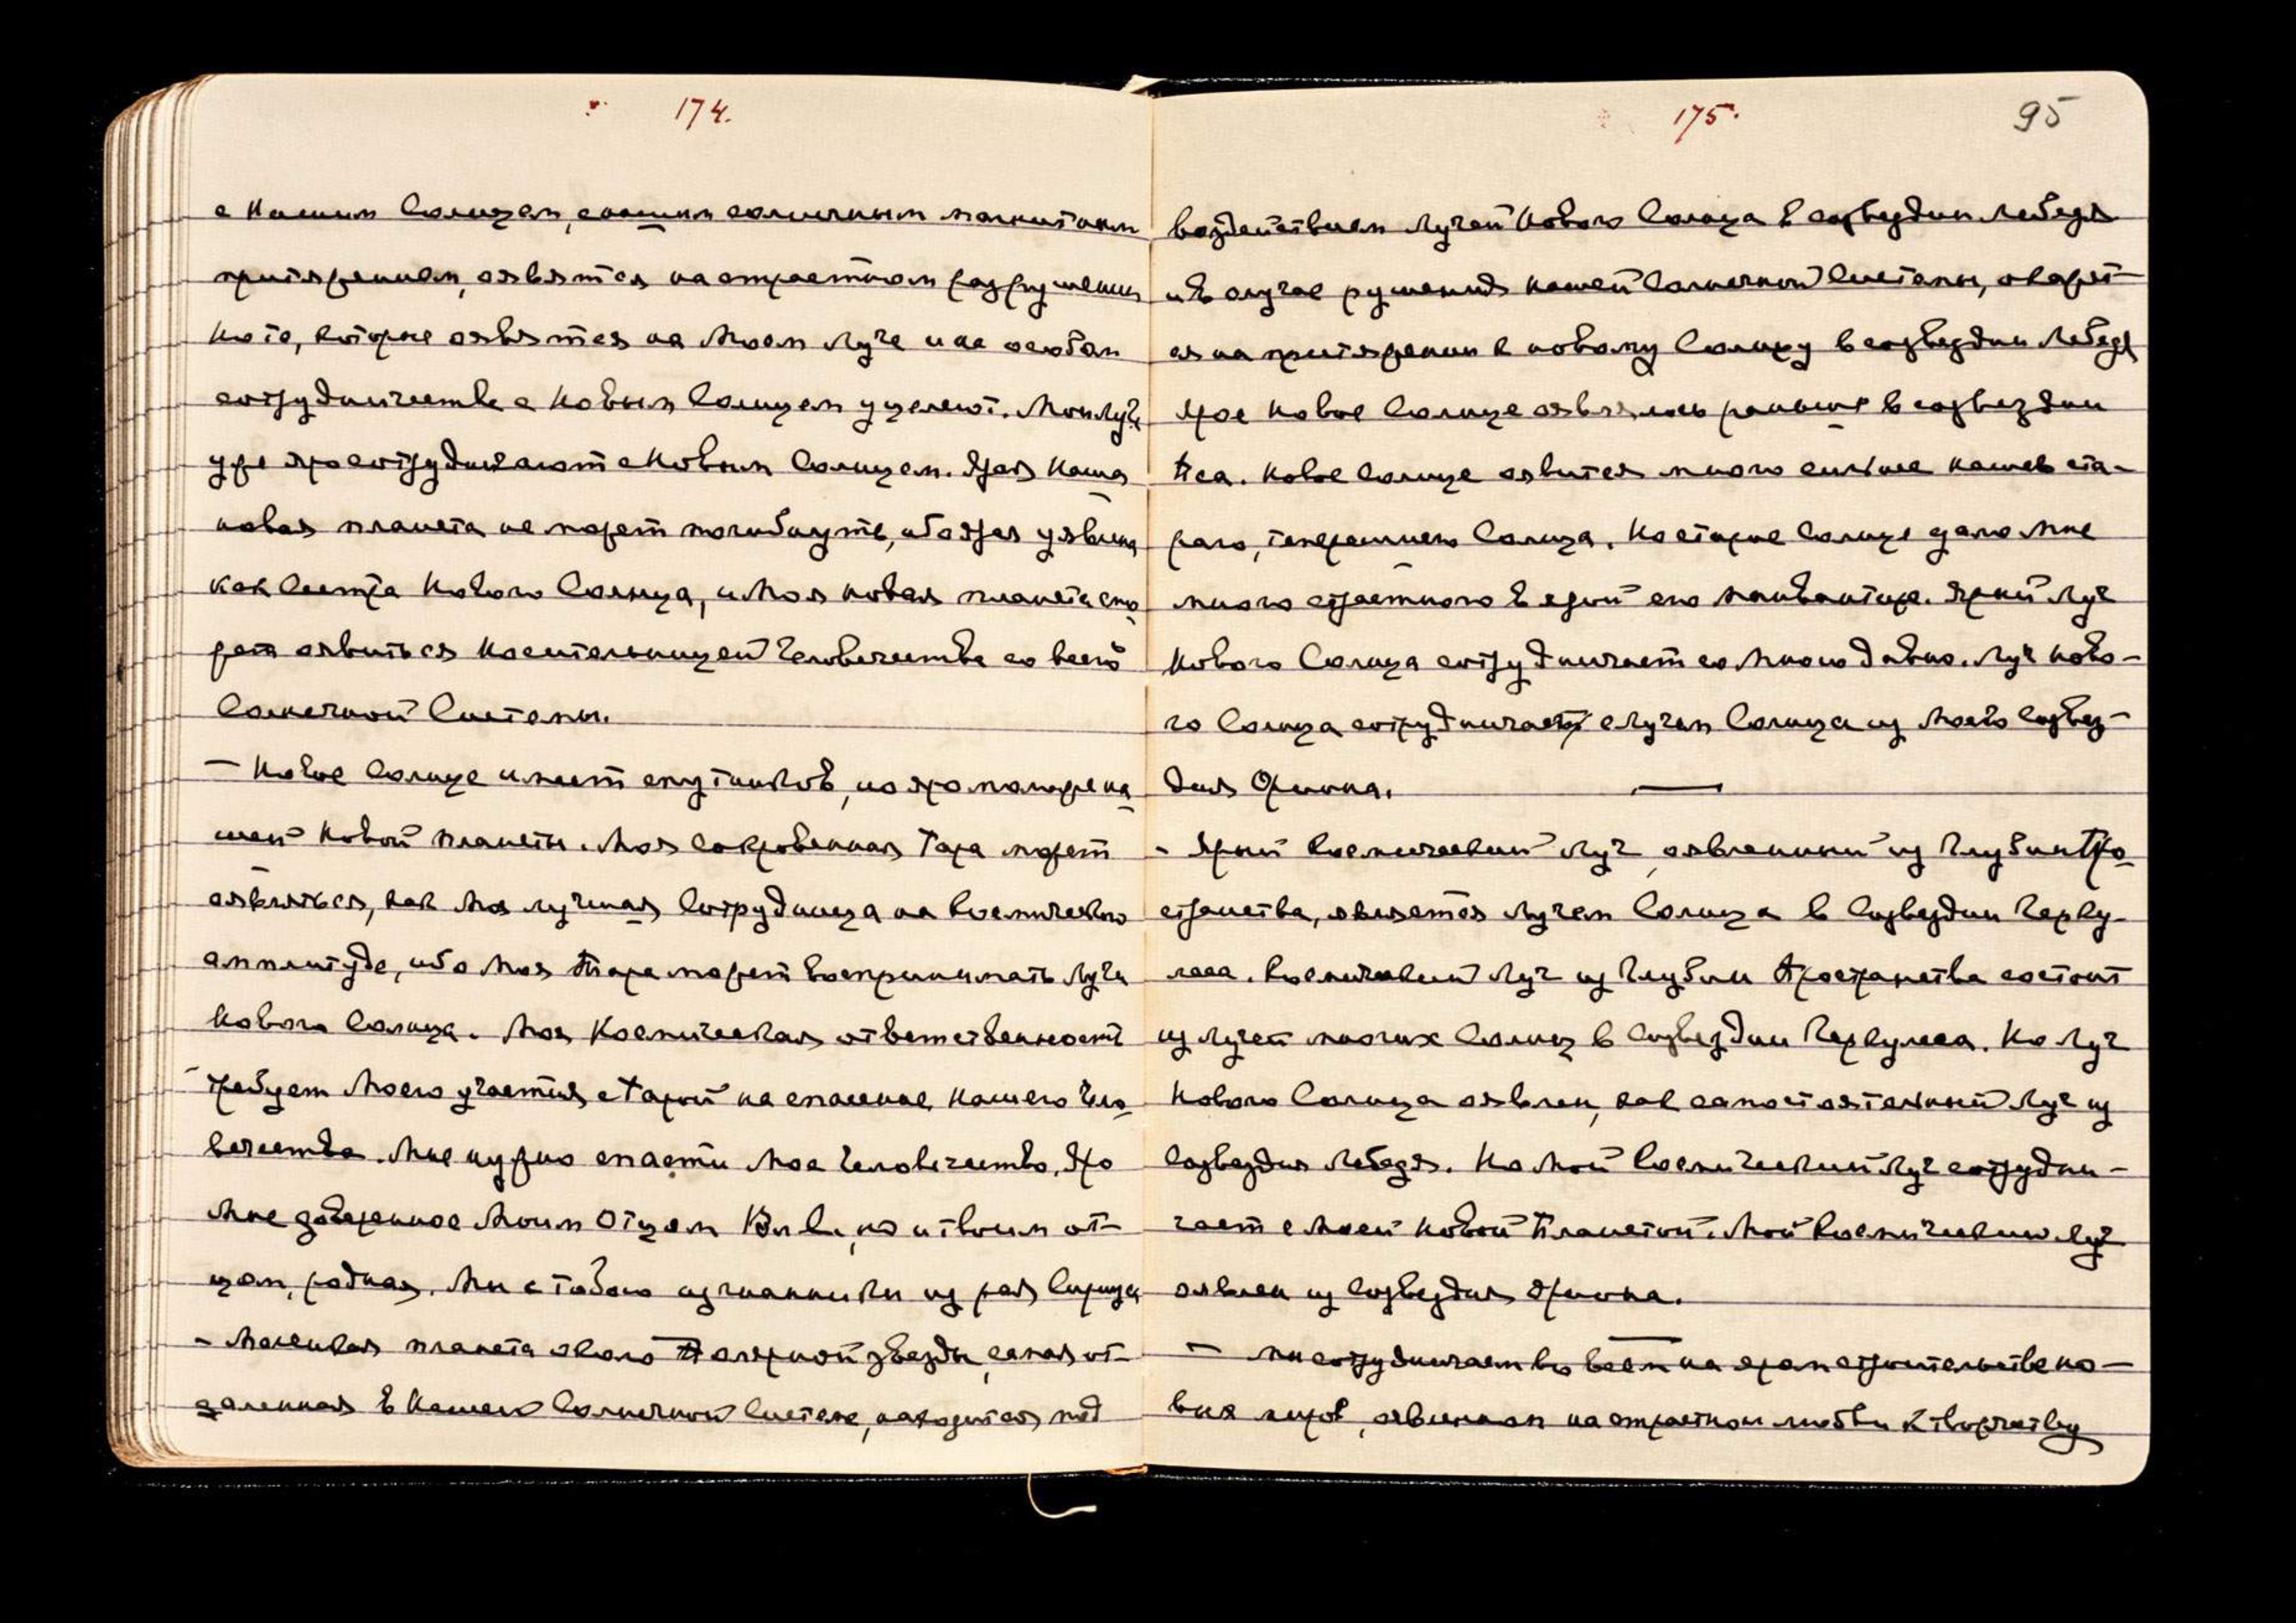 174.
с Нашим Солнцем, с нашим солнечным магнитным
притяжением, оявятся на страстном разрушении
Но те, которые оявятся на Моем Луче и на особом
сотрудничестве с Новым Солнцем уцелеют. Мои Лучи
уже яро сотрудничают с Новым Солнцем. Ярая Наша
новая планета не может погибнуть, ибо ярая уявлена
как Сестра Нового Солнца, и Моя новая планета смо-
жет оявиться Носительницей Человечества со всей
Солнечной Системы.
— Новое Солнце имеет спутников, но яро моложе на-
шей Новой планеты. Моя сокровенная Тара может
оявляться, как Моя лучшая Сотрудница на Космической
амплитуде, ибо Моя Тара может воспринимать Лучи
Нового Солнца. Моя Космическая ответственность
требует Моего участия с Тарой на спасение Нашего Чело-
вечества. Мне нужно спасти Мое Человечество. Это
Мне доверенное Моим Отцом, но и твоим от-
цом, родная. Мы с тобою изгнанники из рая Сириуса
— Маленькая планета около Полярной звезды, самая от-
даленная в Нашей Солнечной Системе, находится под
175. 95
воздействием Лучей Нового Солнца в созвездии Лебедя
и в случае рушения нашей Солнечной Системы, окажет-
ся на притяжении к новому Солнцу в созвездии Лебедя
Ярое Новое Солнце оявлялось раньше в созвездии
Пса. Новое Солнце оявится много сильнее нашего ста-
рого, теперешнего Солнца. Но старое Солнце дало Мне
много страстного в ярой его Манвантаре. Яркий Луч
Нового Солнца сотрудничает со Мною давно. Луч Ново-
го Солнца сотрудничает с Лучем Солнца из Моего Созвез-
дия Ориона.
— Ярый Космический Луч, оявленный из Глубин Про-
странства, является Лучем Солнца в Созвездии Герку-
леса. Космический Луч из Глубин Пространства состоит
из Лучей многих Солнц в Созвездии Геркулеса. Но Луч
Нового Солнца оявлен, как самостоятельный Луч из
Созвездия Лебедя. Но Мой Космический Луч сотрудни-
чает с Моей Новой Планетой. Мой Космический Луч
оявлен из Созвездия Ориона.
— Мы сотрудничаем во всем на яром строительстве но-
вых миров, оявленном на страстной любви к творчеству